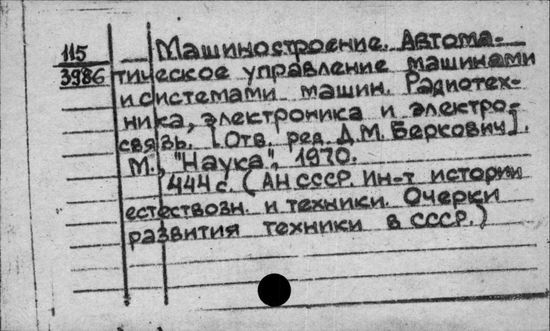 115
3986
Машиностроение. Автома-
тическое управление машинами
и системами машин. Радиотех-
ника, электроника и электро-
связь. [Отв. ред. Д.М. Беркович].
М., "Наука", 1970.
444 с. (АН СССР. Ин-т истории
естествозн. и техники. Очерки
развития техники в СССР.)